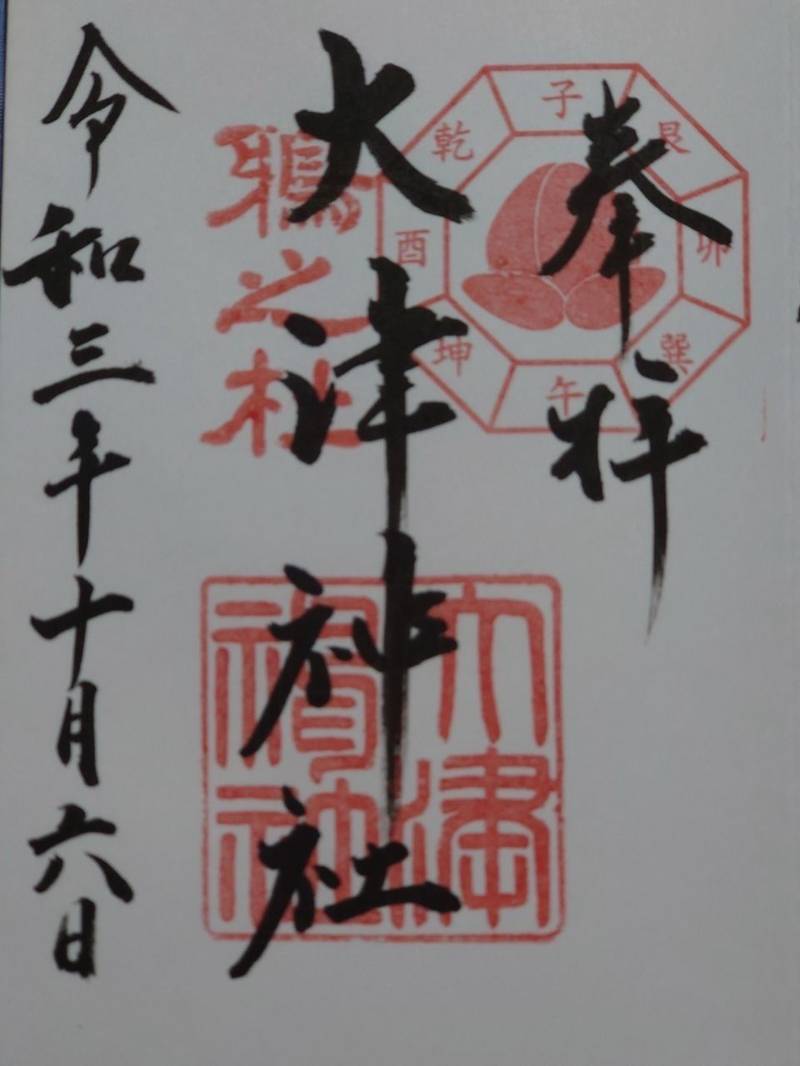 奉拝
子
艮
卯
巽
午
坤
酉
乾
大津神社
鴉之杜
大津
神社
令和三年十月六日